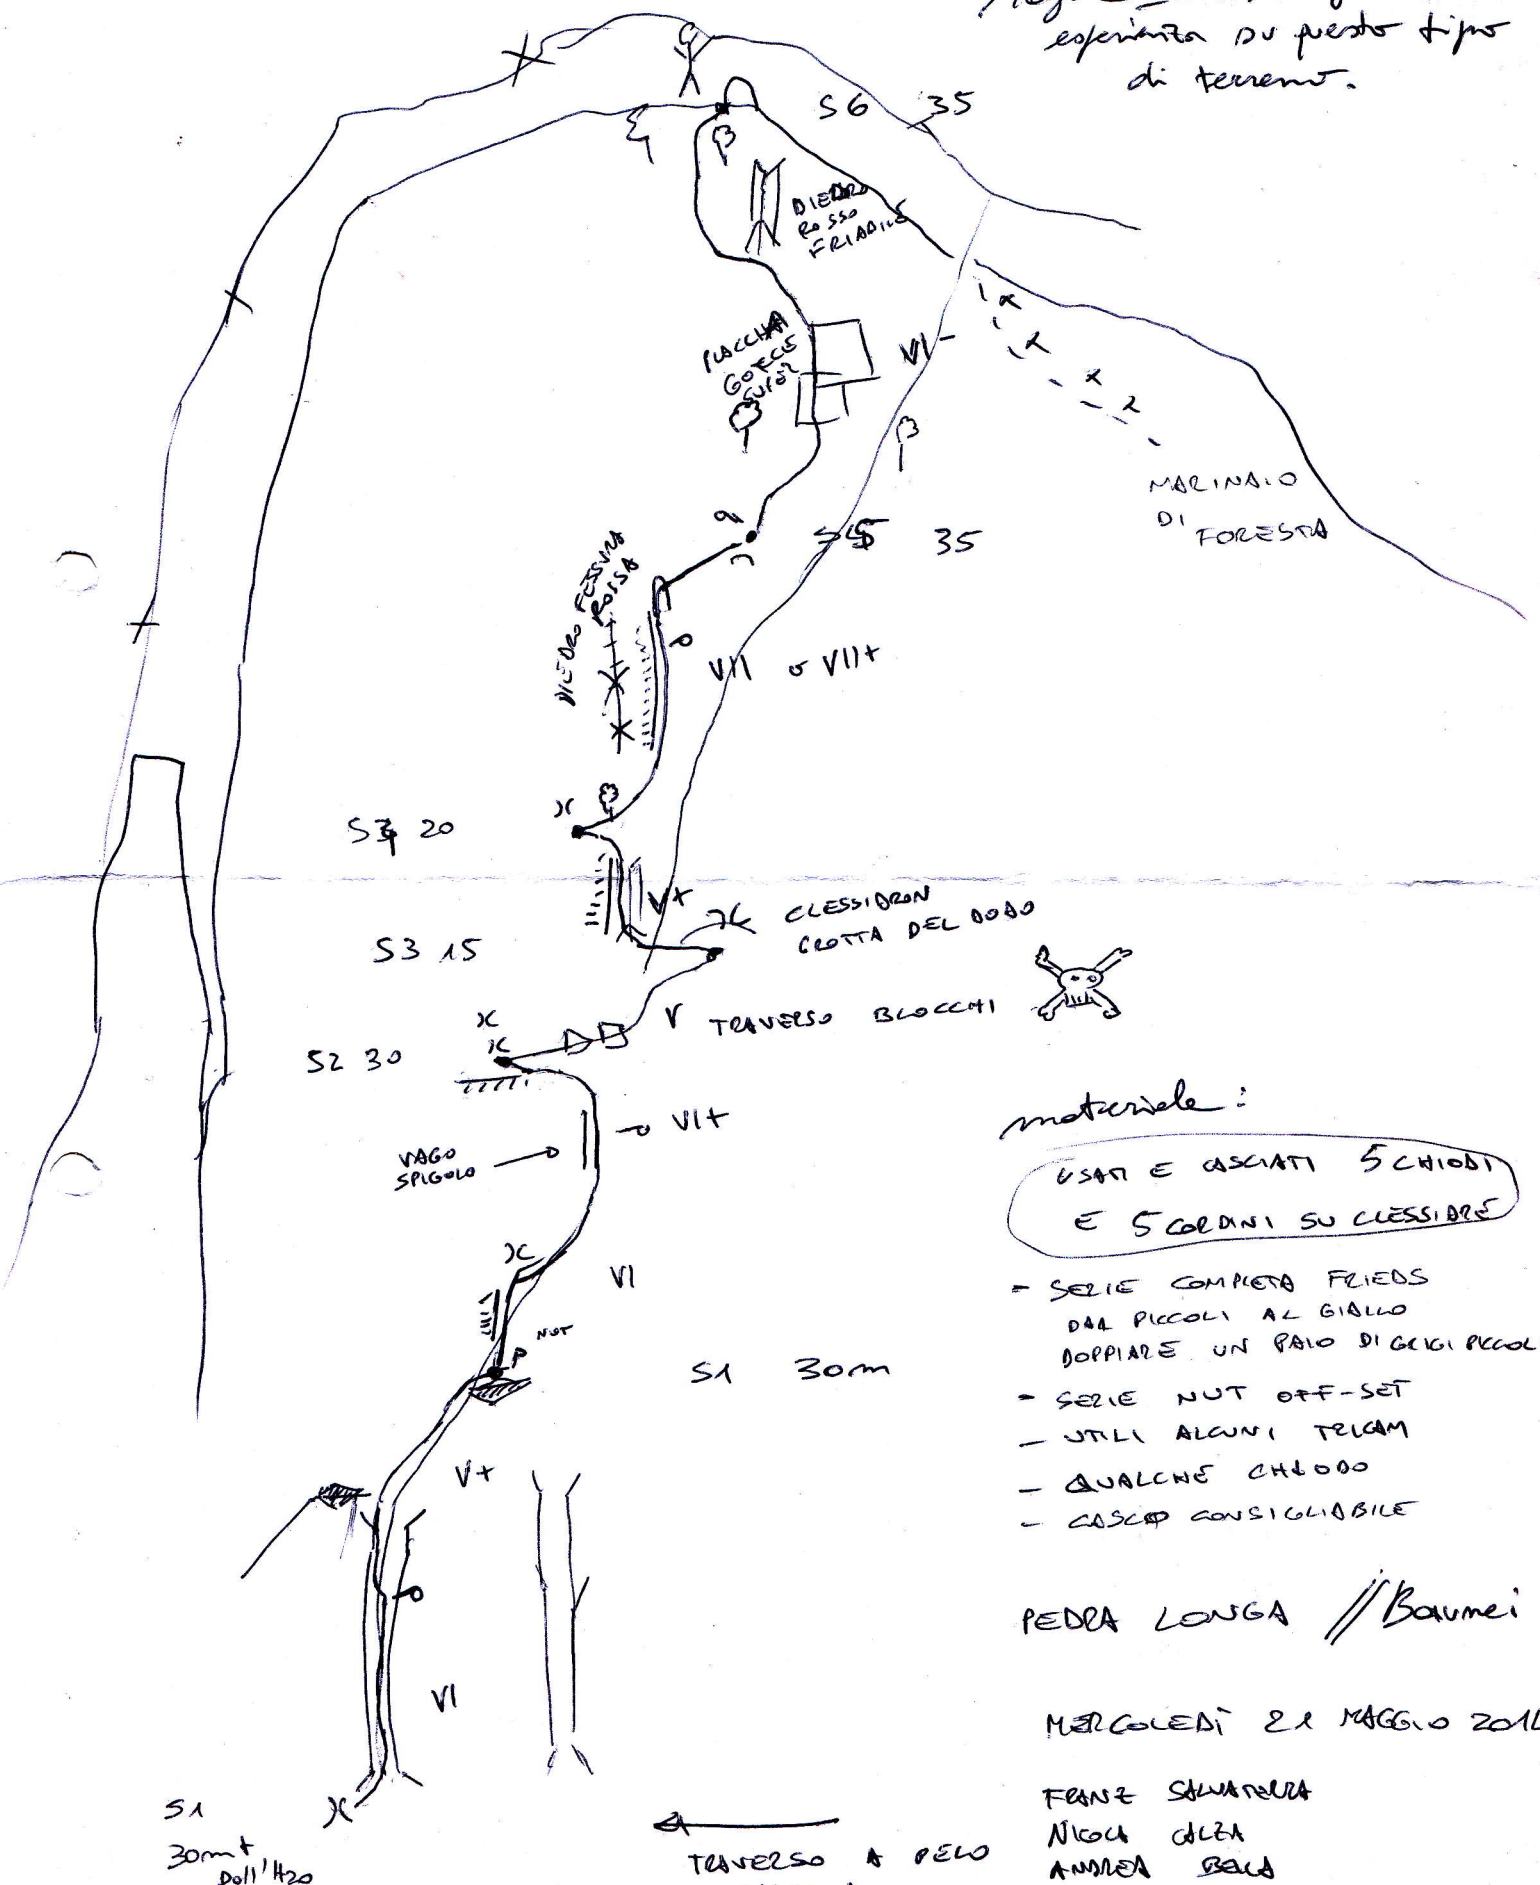 esperienza su questo tipo
di terreno.
S6 35
DIEDRO
ROSSO
FRIABILE
PLACCHA
GOCCE
SUPER
VI-
MARINAIO
DI
FORESTA
S5 35
DIEDRO FESSURA
ROSSA
VII o VII+
S4 20
V+
CLESSIDRON
GROTTA DEL DODO
S3 15
V TRAVERSO BLOCCHI
S2 30
VI+
VAGO
SPIGOLO
VI
NUT
S1 30m
V+
VI
S1
30mt
Dall'H2O
TRAVERSO A PELO
materiale:
USATI E LASCIATI 5 CHIODI
E 5 CORDINI SU CLESSIDRE
- SERIE COMPLETA FRIEDS
DAI PICCOLI AL GIALLO
DOPPIARE UN PAIO DI GRIGI PICCOL
- SERIE NUT OFF-SET
- UTILI ALCUNI TRICAM
- QUALCHE CHIODO
- CASCO CONSIGLIABILE
PEDRA LONGA // Baunei
MERCOLEDÌ 21 MAGGIO 201
FRANZ SALVATERRA
NICOLA CALZA
ANDREA